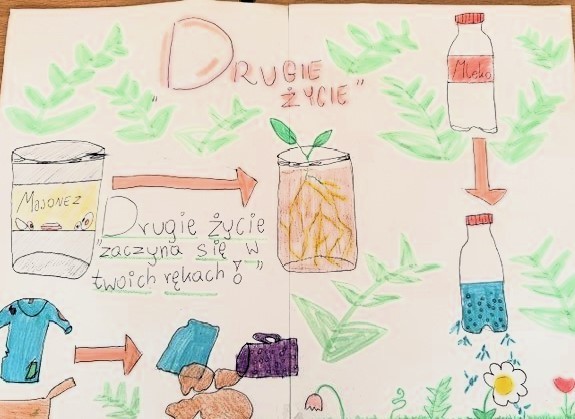 „Drugie
życie”
Mleko
Majonez
„Drugie życie
zaczyna się w
twoich rękach”